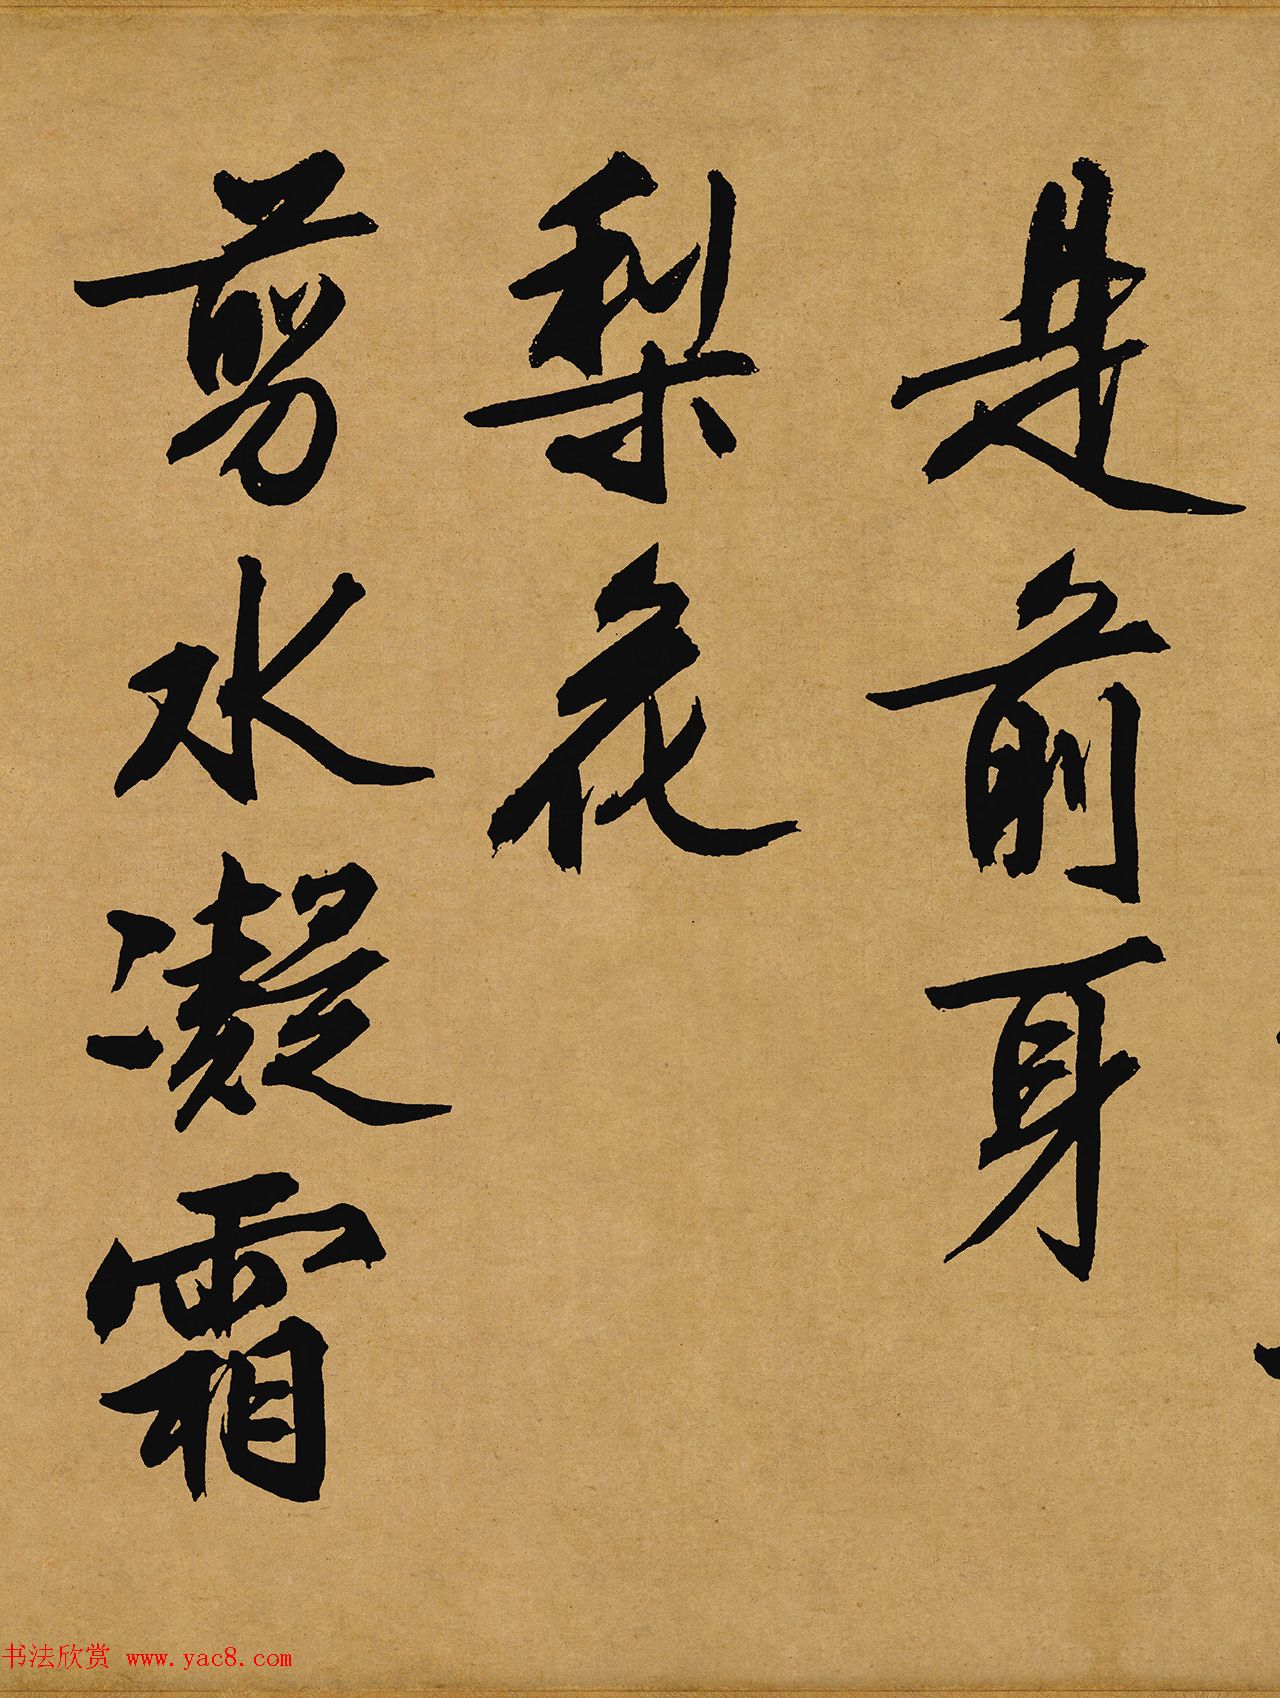 是前身
梨花
剪水凝霜
书法欣赏 www.yac8.com